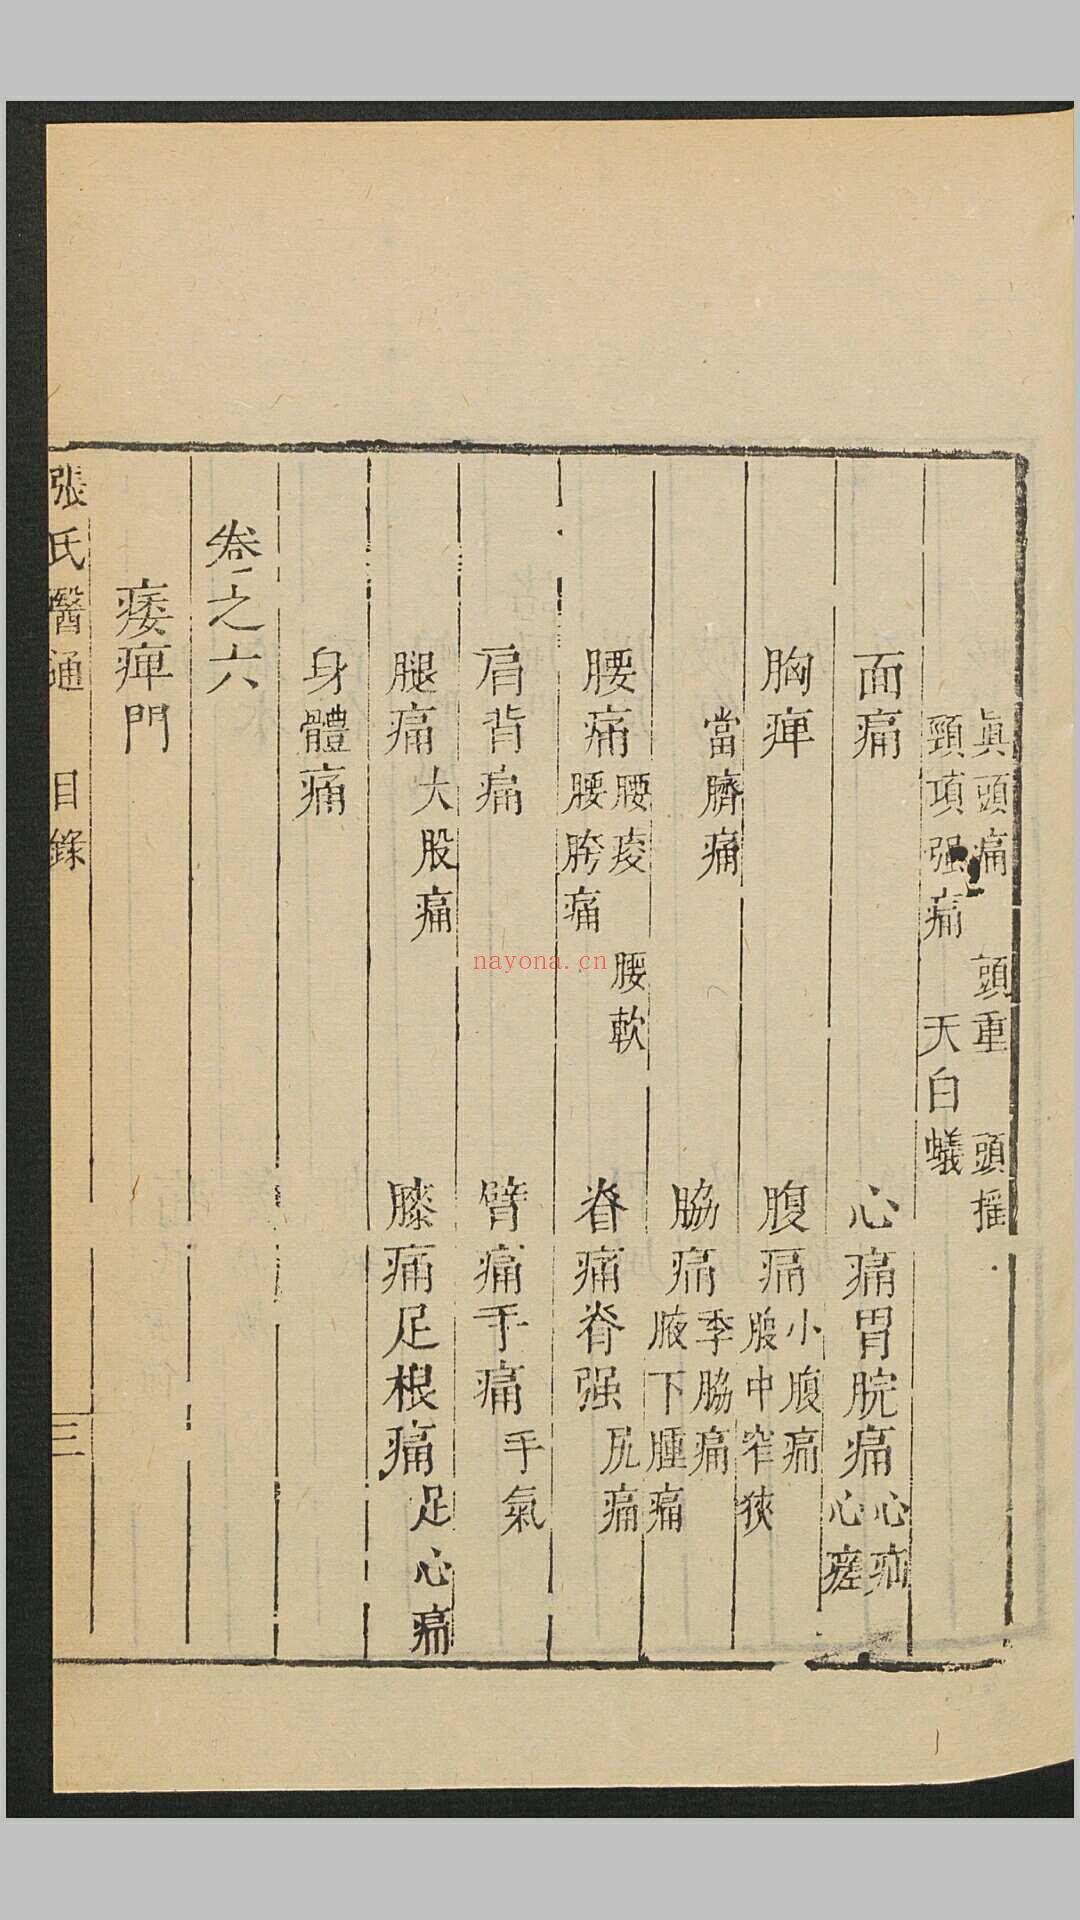 眞頭痛　頭重　頭摇
頸項强痛　天白蟻
面痛　心痛胃脘痛
心疝
心痓
胸痺　腹痛
小腹痛
腹中窄狹
當臍痛　脇痛
季脇痛
腋下腫痛
腰痛
腰痠　腰軟
腰胯痛
脊痛脊强尻痛
肩背痛　臂痛手痛手氣
腿痛大股痛　膝痛足根痛足心痛
身體痛
卷之六
痿痺門
張氏醫通　目錄　三
nayona.cn